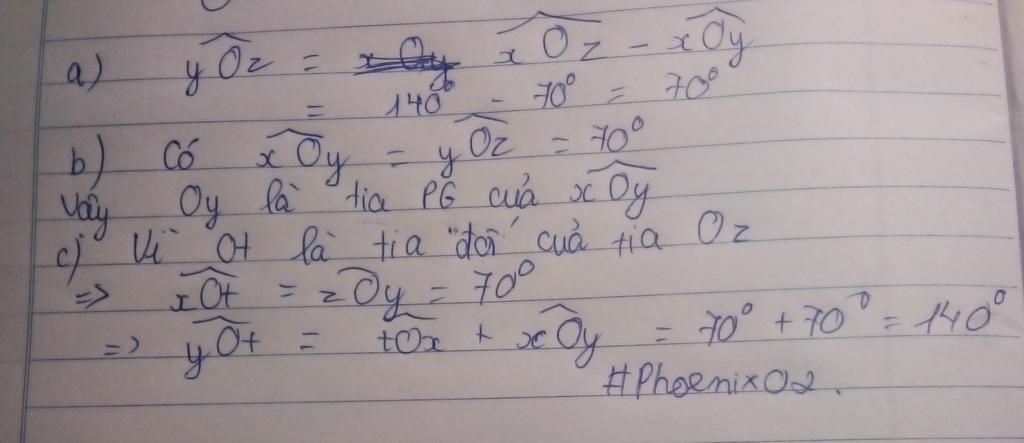 a) yOz = xOy xOz - xOy
= 140° - 70° = 70°
b) Có xOy = yOz = 70°
Vậy Oy là tia PG của xOy
c) Vì Ot là tia đối của tia Oz
=> xOt = zOy = 70°
=> yOt = tOx + xOy = 70° + 70° = 140°
#Phoenix02.